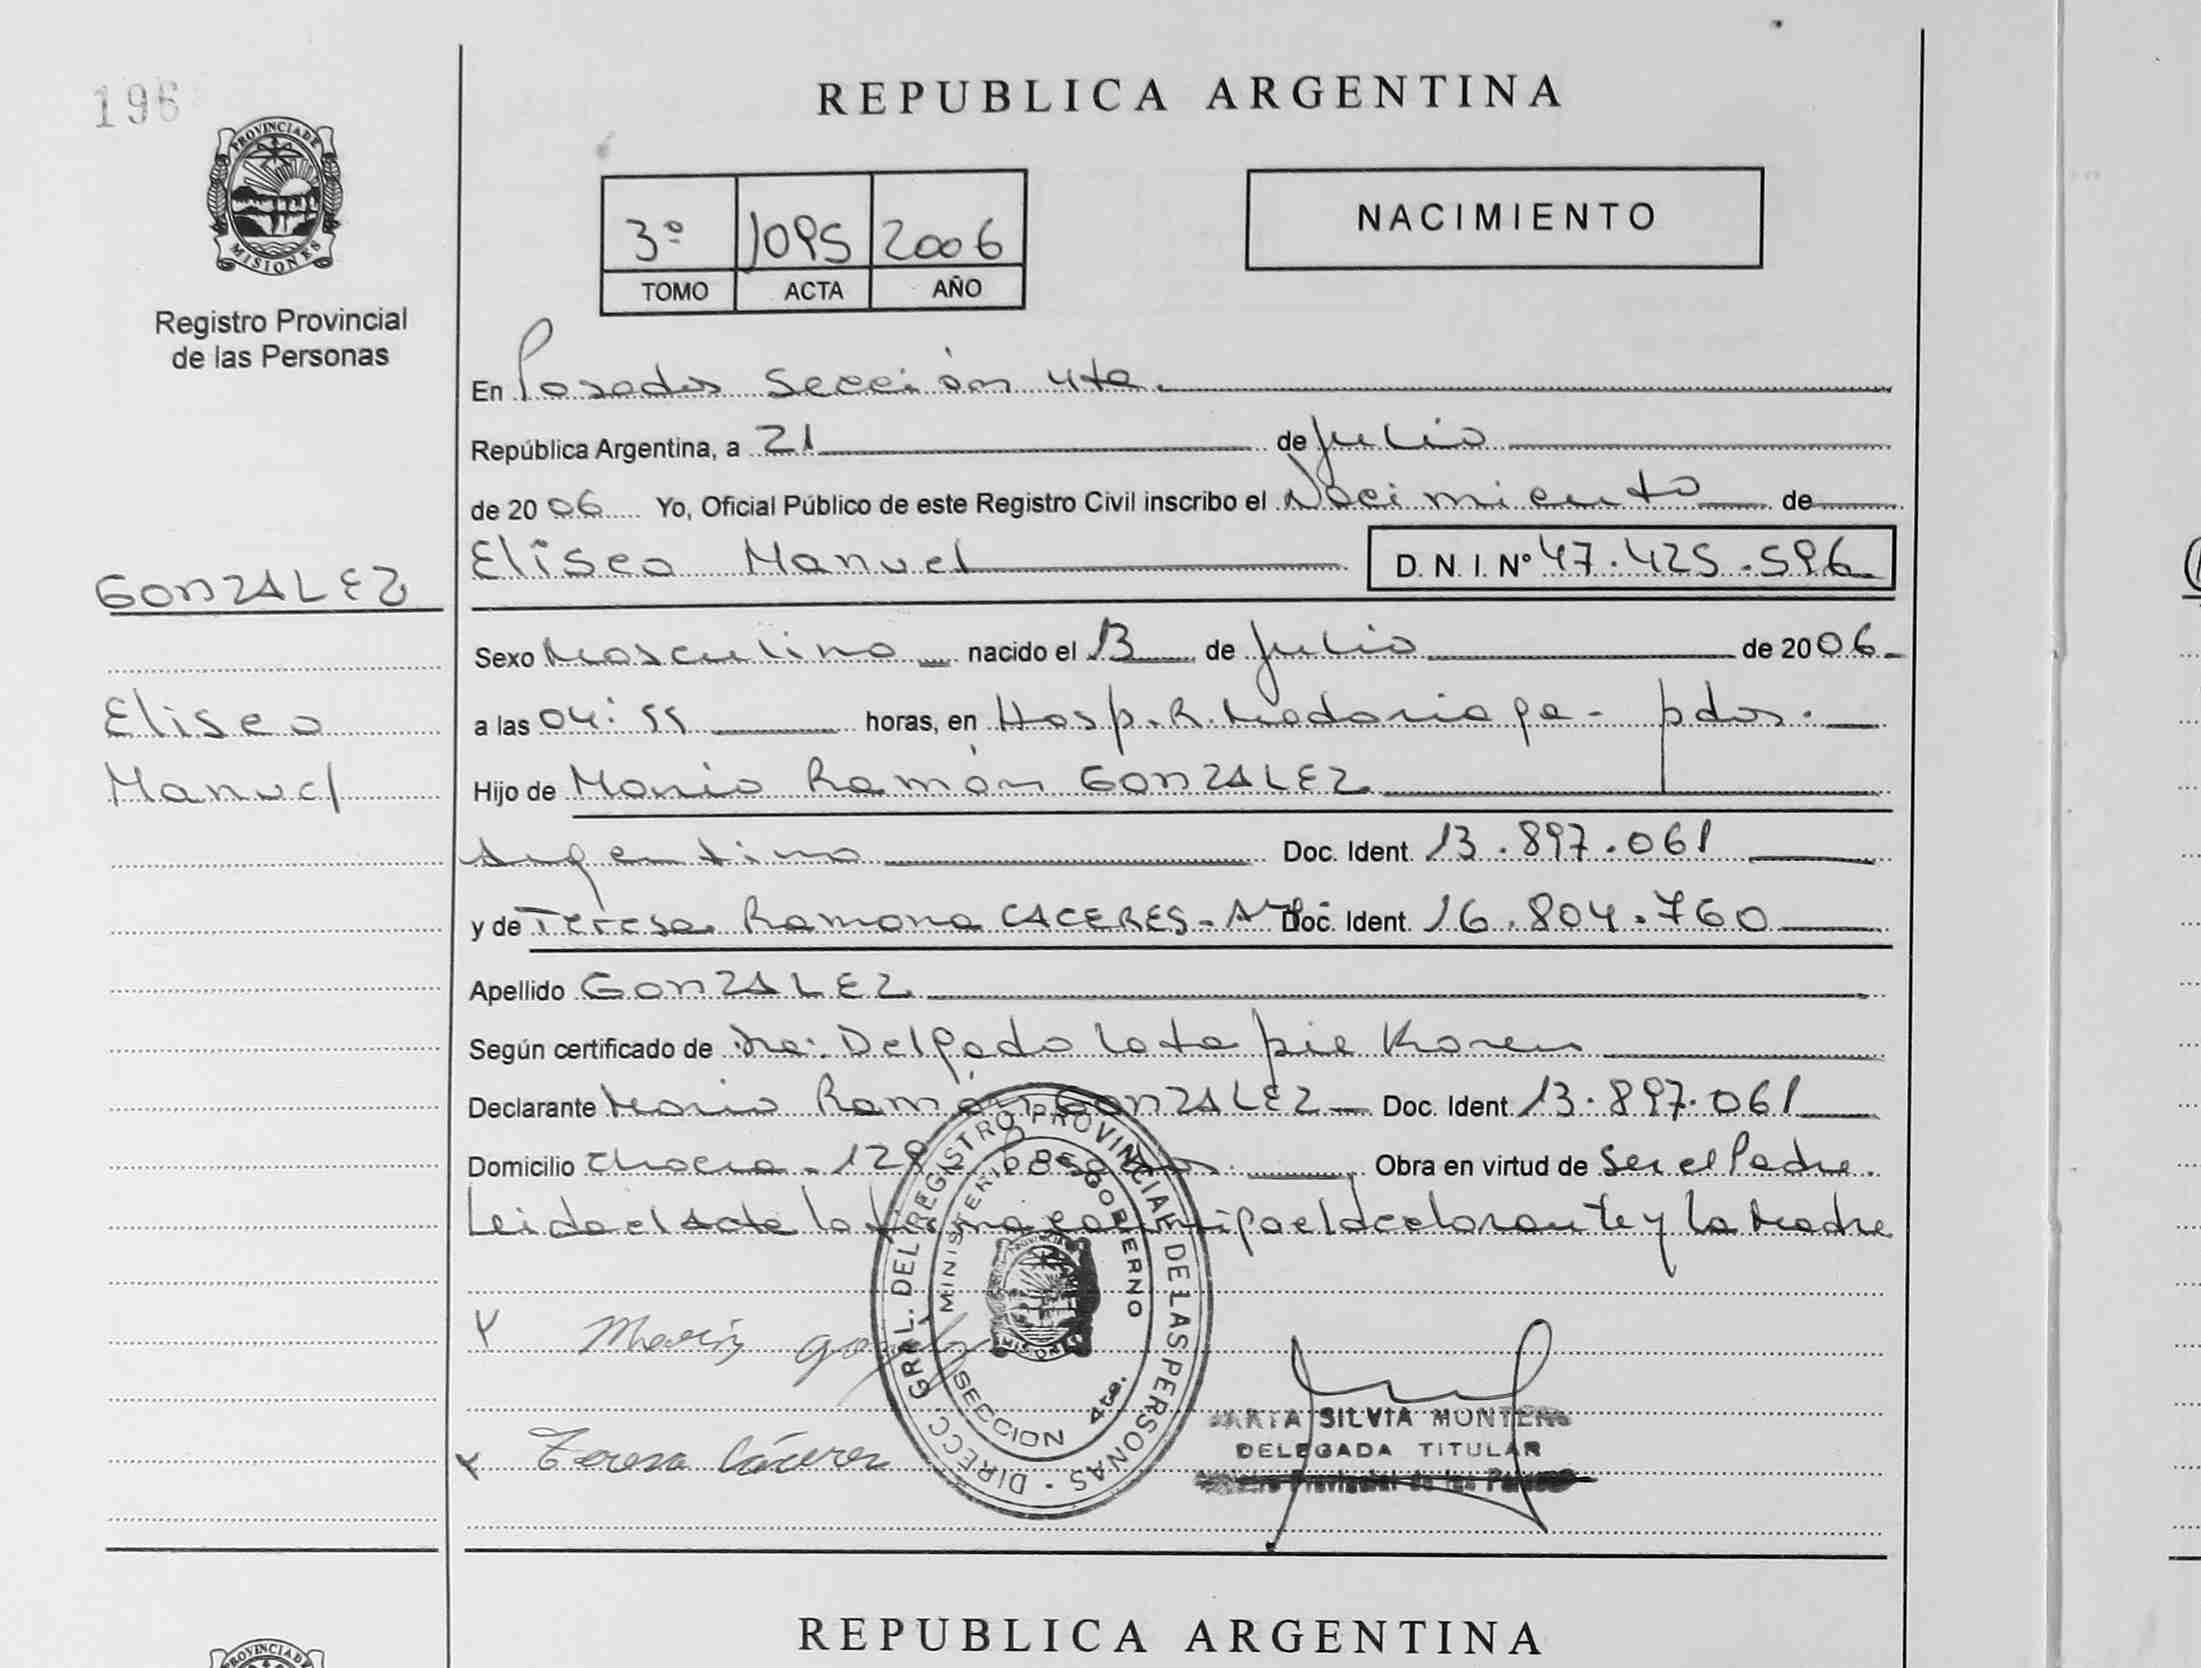 196
PROVINCIA DE MISIONES
Registro Provincial
de las Personas
REPUBLICA ARGENTINA
3º 1095 2006
TOMO ACTA AÑO
NACIMIENTO
En Posadas Sección 4ta.
República Argentina, a 21 de Julio
de 2006 Yo, Oficial Público de este Registro Civil inscribo el Nacimiento de
Eliseo Manuel D.N.I. Nº 47.425.596
GONZALEZ
Eliseo
Manuel
Sexo Masculino nacido el 13 de Julio de 2006
a las 04:55 horas, en Hosp. R. Madariaga - pdas.
Hijo de Mario Ramón GONZALEZ
Argentino Doc. Ident. 13.897.061
y de Teresa Ramona CACERES - Doc. Ident. 16.804.760
Apellido GONZALEZ
Según certificado de Dra. Delgado Latapie Karen
Declarante Mario Ramón GONZALEZ Doc. Ident. 13.897.061
Domicilio Chacra - 128 Obra en virtud de Ser el Padre.
Leida el Acta la firma conmigo el declarante y la Madre
DIRECC. GRAL. DEL REGISTRO PROVINCIAL DE LAS PERSONAS
MINISTERIO DE GOBIERNO
SECCION 4ta.
Teresa Cáceres
SILVIA MONTERO
DELEGADA TITULAR
Provincial de las
REPUBLICA ARGENTINA
PROVINCIA DE